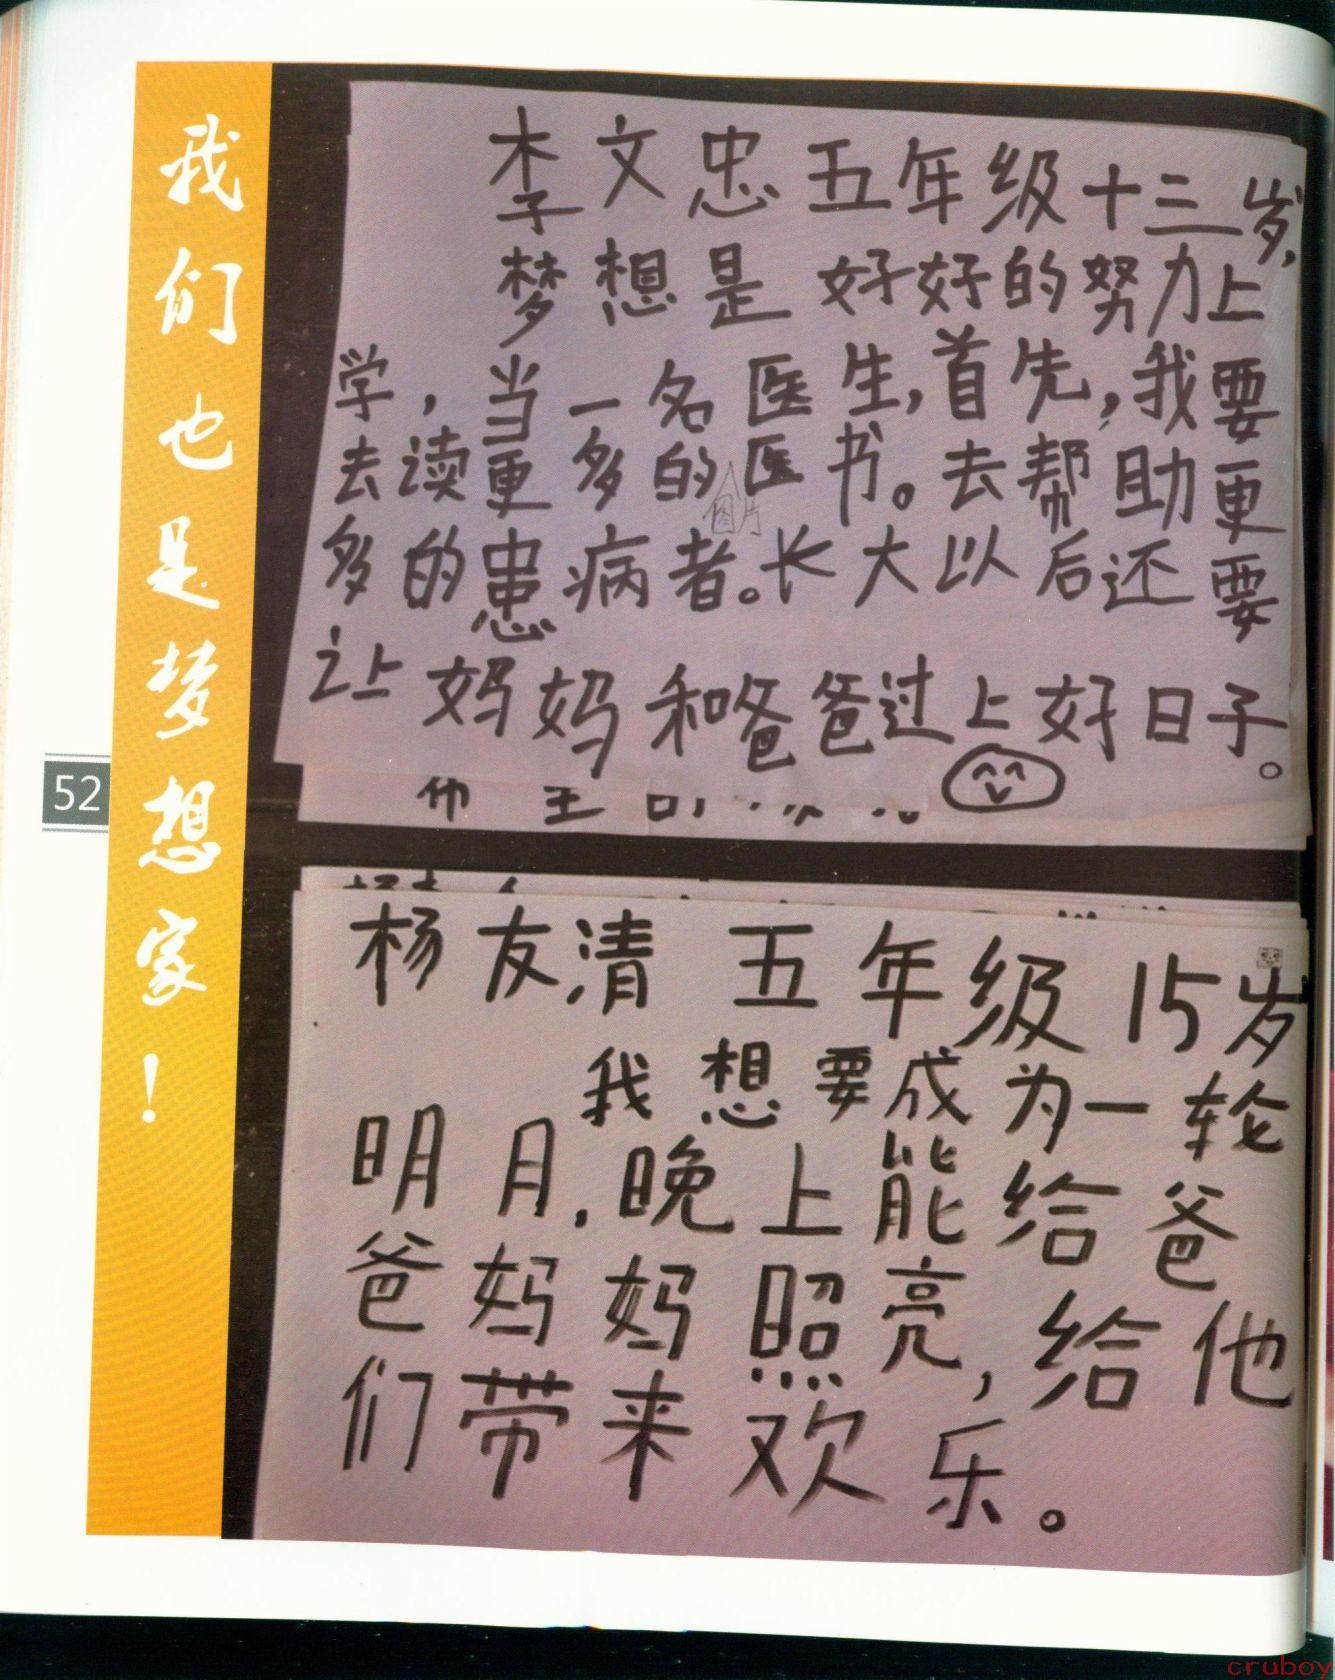 我们也是梦想家！
52
李文忠 五年级十三岁,
梦想是 好好的努力上
学，当一名医生,首先,我要
去读更多的医书。去帮助更
图片
多的患病者。长大以后还要
让妈妈和爸爸过上好日子。
杨友清 五年级 15岁
我想要成为一轮
明月,晚上能给爸
爸妈妈照亮,给他
们带来欢乐。
cruboy